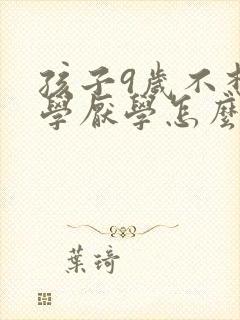 孩子9歲不
學厭學怎麼
葉琦